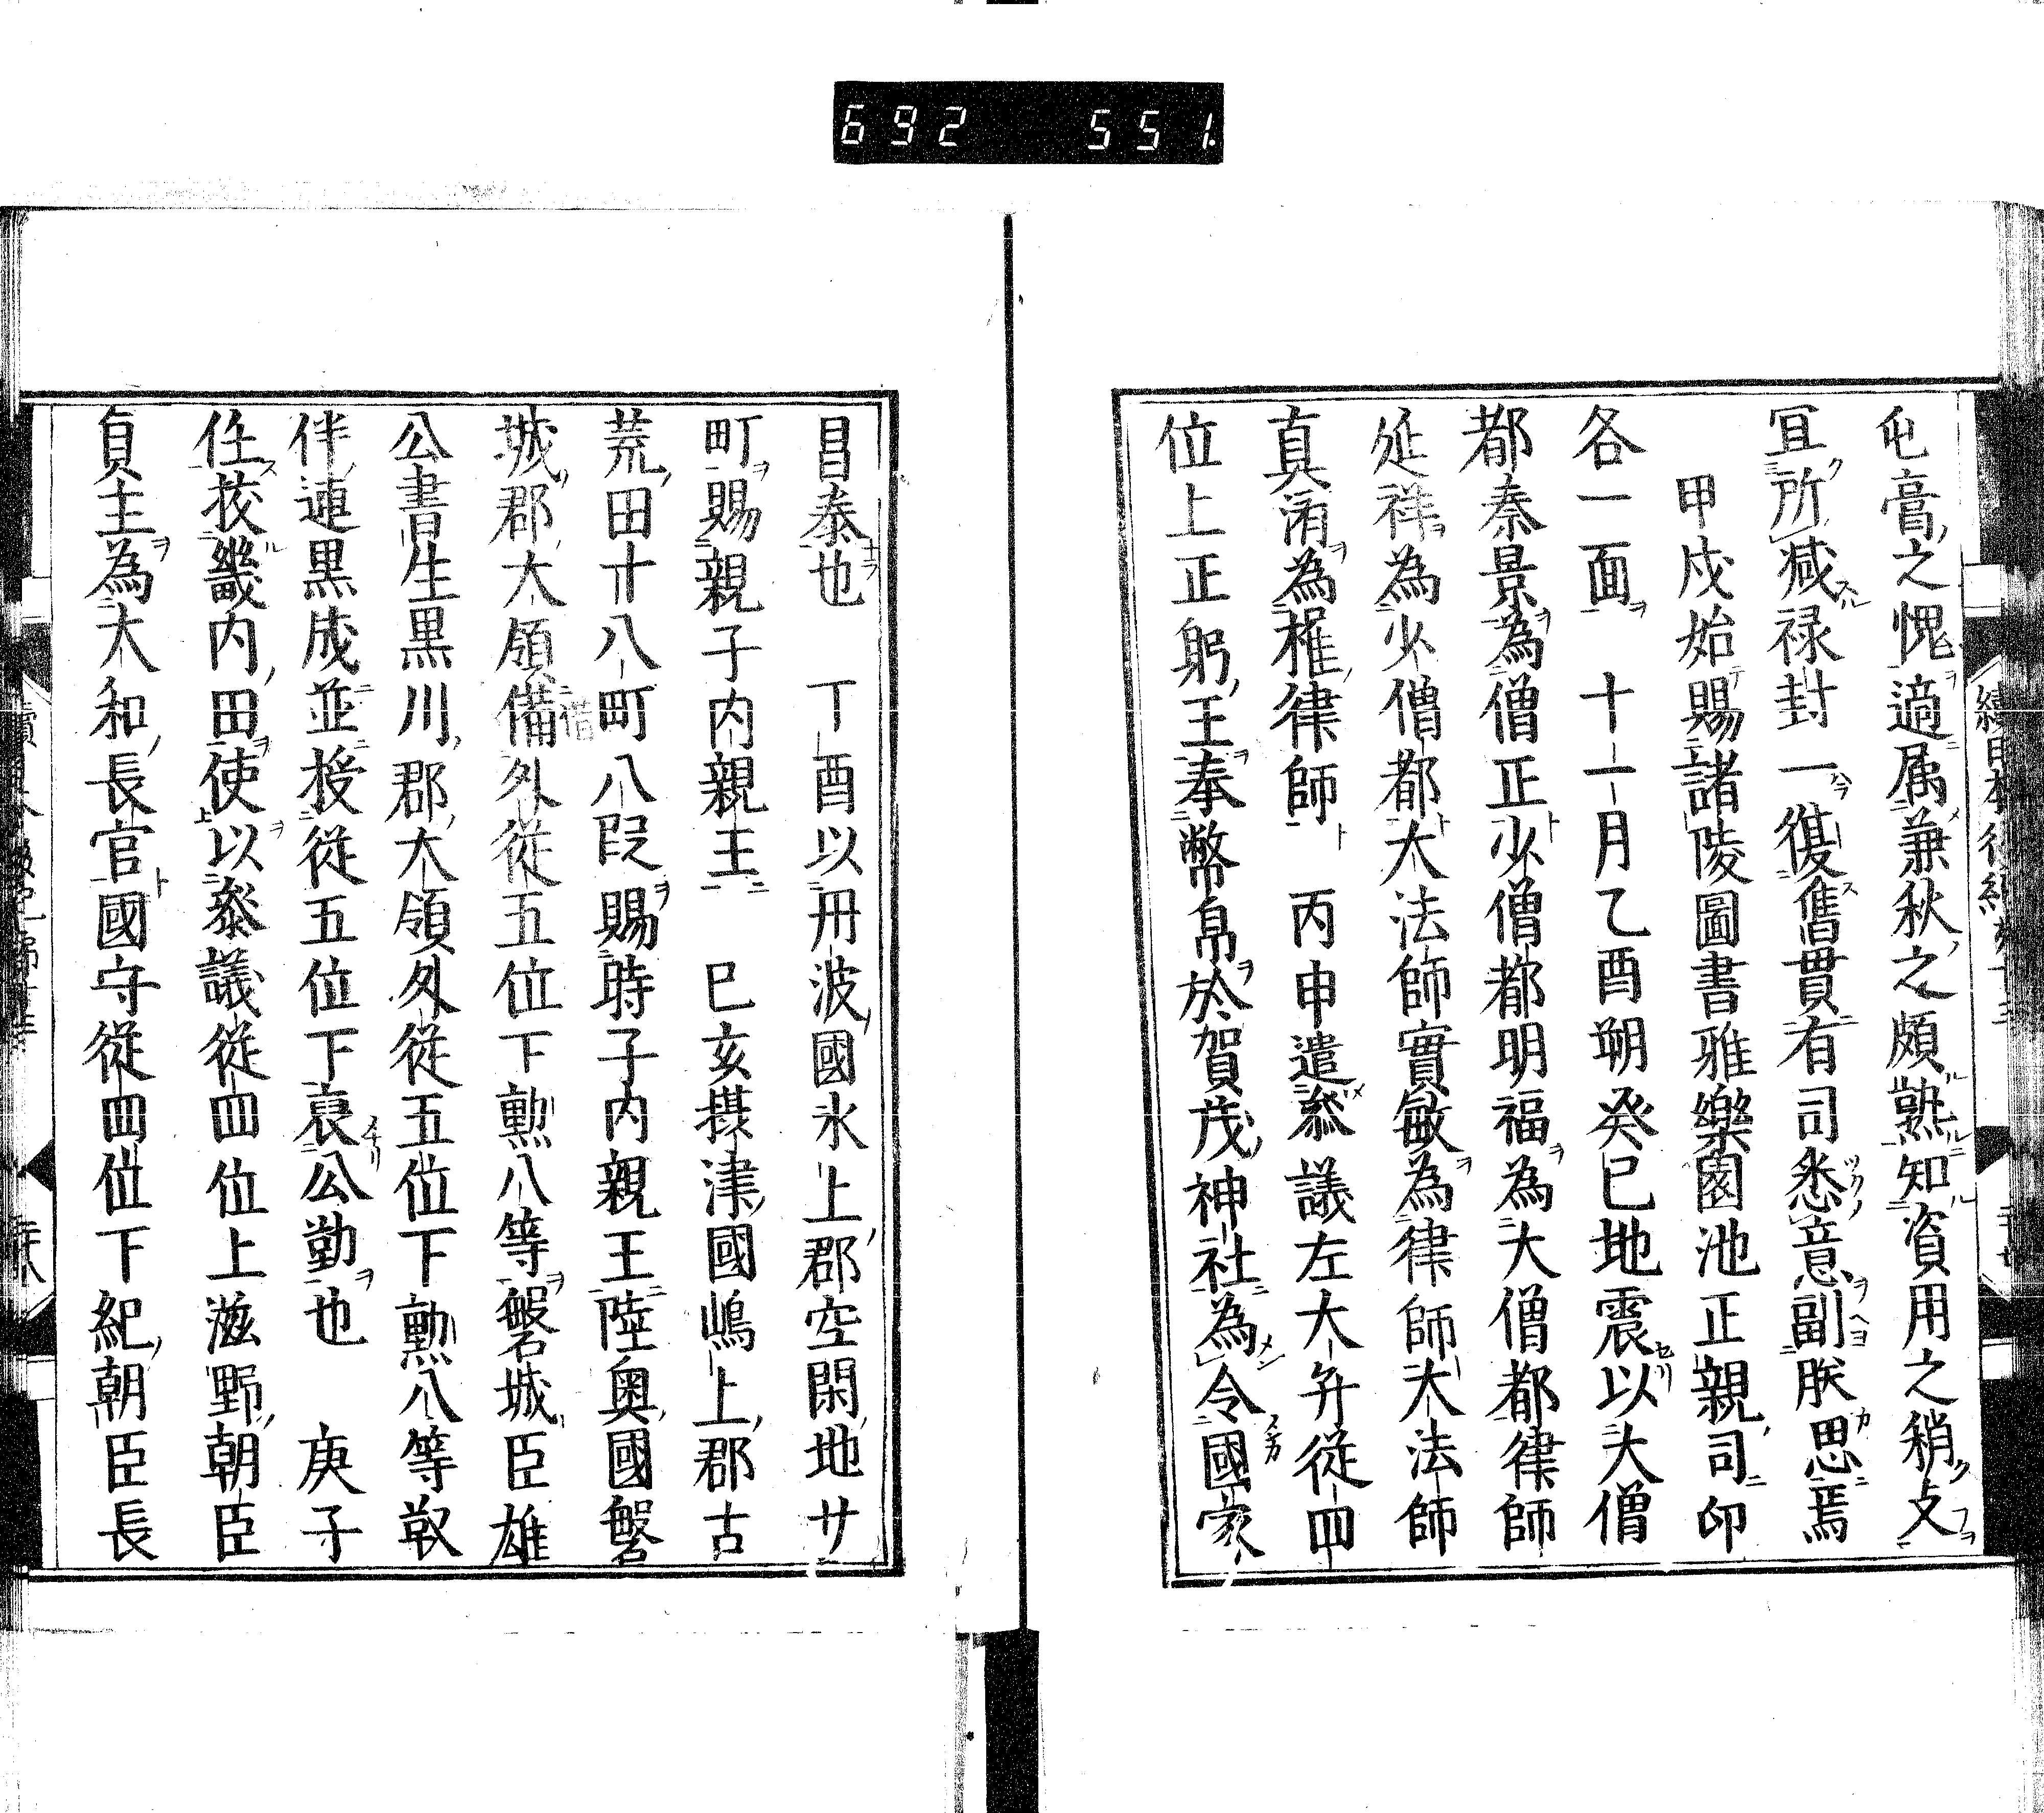 692 551
屯膏之愧適属兼秋之頗熟知資用之稍攴
冝所减禄封一復舊貫有司悉意副朕思焉
甲戍始賜諸陵圖書雅樂園池正親司印
各一面 十一月乙酉朔癸巳地震以大僧
都泰景為僧正少僧都明福為大僧都律師
延祥為少僧都大法師實敏為律師大法師
真済為權律師 丙申遣叅議左大弁従四
位上正躬王奉幣帛於賀茂神社為令國家
昌泰也 丁酉以丹波國氷上郡空閑地廿
町賜親子内親王 己亥攝津國嶋上郡古
荒田卄八町八段賜時子内親王陸奥國磐
城郡大領備外従五位下勲八等磐城臣雄
借
公書生黒川郡大領外従五位下勲八等靫
伴連黒成並授従五位下裒公勤也 庚子
任挍畿内田使以叅議従四位上滋野朝臣
貞主為大和長官國守従四位下紀朝臣長